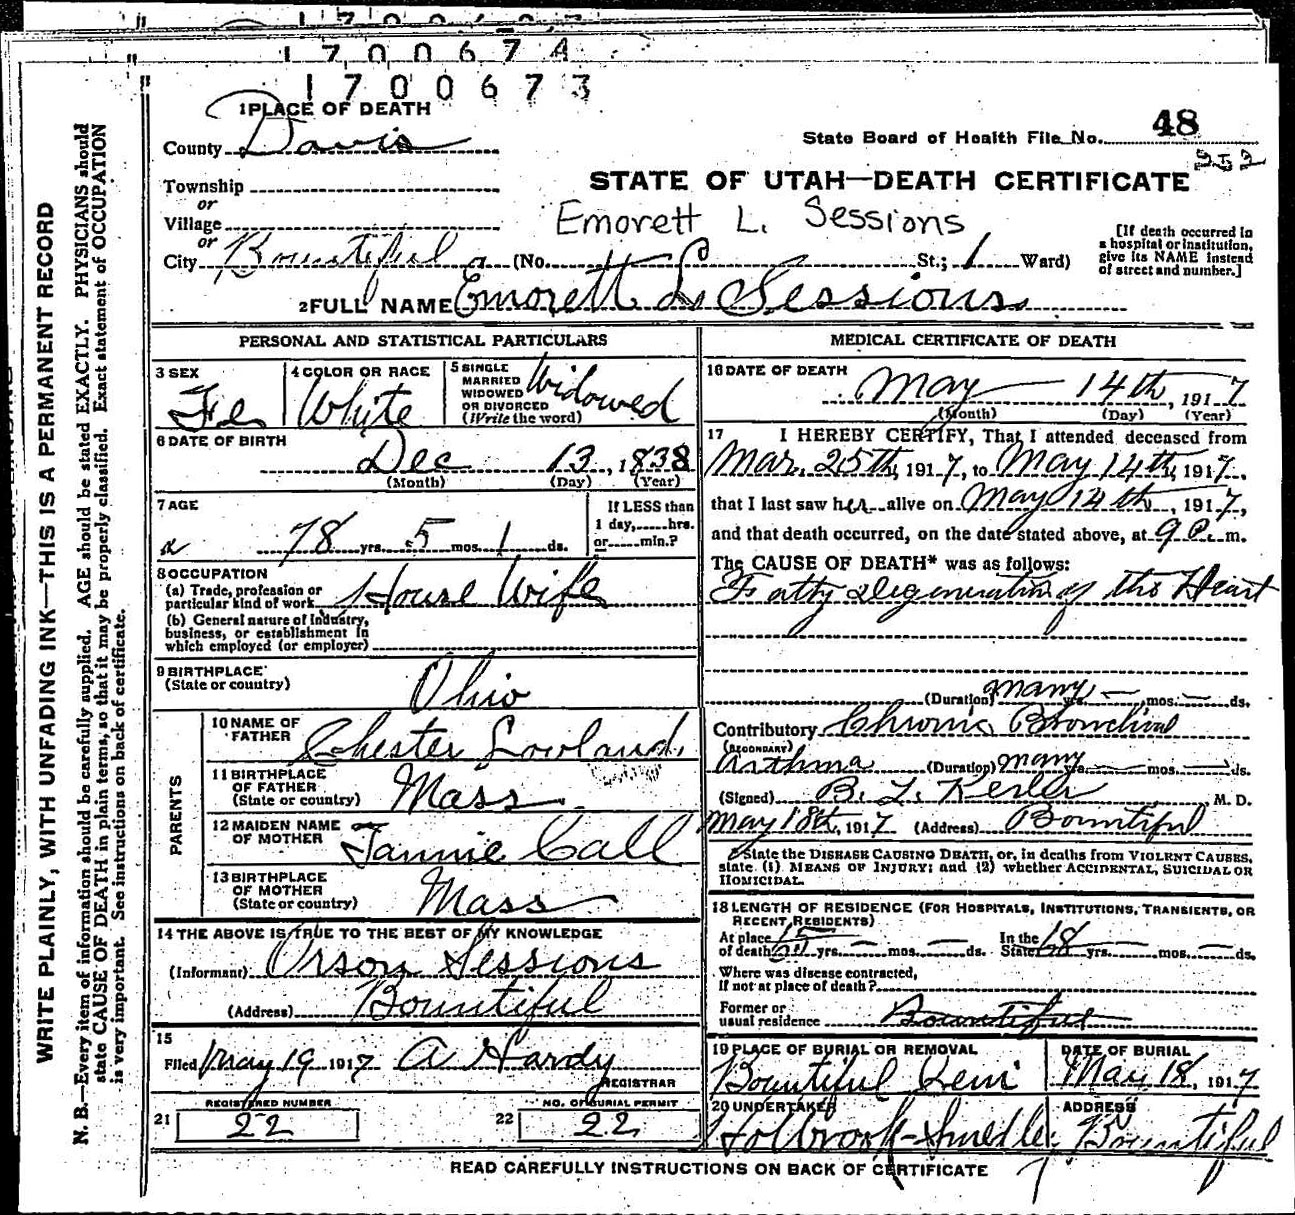 1700674
1700673
1 PLACE OF DEATH
County Davis
State Board of Health File No. 48
Township
or
Village
or
City Bountiful (No. St.; 1 Ward)
STATE OF UTAH—DEATH CERTIFICATE
Emorett L. Sessions
[If death occurred in
a hospital or institution,
give its NAME instead
of street and number.]
2 FULL NAME Emorett L. Sessions
PERSONAL AND STATISTICAL PARTICULARS
3 SEX Fe
4 COLOR OR RACE White
5 SINGLE
MARRIED
WIDOWED
OR DIVORCED
(Write the word) Widowed
6 DATE OF BIRTH
Dec 13, 1838
(Month) (Day) (Year)
7 AGE
78 yrs. 5 mos. 1 ds.
If LESS than
1 day, hrs.
or min.?
8 OCCUPATION
(a) Trade, profession or
particular kind of work House Wife
(b) General nature of Industry,
business, or establishment in
which employed (or employer)
9 BIRTHPLACE
(State or country) Ohio
PARENTS
10 NAME OF
FATHER Chester Loveland
11 BIRTHPLACE
OF FATHER
(State or country) Mass
12 MAIDEN NAME
OF MOTHER Fannie Call
13 BIRTHPLACE
OF MOTHER
(State or country) Mass
14 THE ABOVE IS TRUE TO THE BEST OF MY KNOWLEDGE
(Informant) Orson Sessions
(Address) Bountiful
15
Filed May 19 1917 A Hardy
REGISTRAR
REGISTERED NUMBER
21 22
NO. OF BURIAL PERMIT
22 22
MEDICAL CERTIFICATE OF DEATH
16 DATE OF DEATH
May 14th, 1917
(Month) (Day) (Year)
17 I HEREBY CERTIFY, That I attended deceased from
Mar. 25th, 1917, to May 14th, 1917,
that I last saw her alive on May 14th, 1917,
and that death occurred, on the date stated above, at 9 P. m.
The CAUSE OF DEATH* was as follows:
Fatty Degeneration of the Heart
(Duration) many yrs. mos. ds.
Contributory Chronic Bronchial
(SECONDARY)
Asthma (Duration) many mos. ds.
(Signed) B. L. Kesler M. D.
May 18th, 1917 (Address) Bountiful
*State the DISEASE CAUSING DEATH, or, in deaths from VIOLENT CAUSES,
state (1) MEANS OF INJURY; and (2) whether ACCIDENTAL, SUICIDAL OR
HOMICIDAL.
18 LENGTH OF RESIDENCE (FOR HOSPITALS, INSTITUTIONS, TRANSIENTS, OR
RECENT RESIDENTS)
At place
of death yrs. mos. ds. In the
State 68 yrs. mos. ds.
Where was disease contracted,
if not at place of death?
Former or
usual residence Bountiful
19 PLACE OF BURIAL OR REMOVAL
Bountiful Cem
DATE OF BURIAL
May 18, 1917
20 UNDERTAKER
Holbrook-Smedley
ADDRESS
Bountiful
READ CAREFULLY INSTRUCTIONS ON BACK OF CERTIFICATE
WRITE PLAINLY, WITH UNFADING INK—THIS IS A PERMANENT RECORD
N. B.—Every item of information should be carefully supplied. AGE should be stated EXACTLY. PHYSICIANS should
state CAUSE OF DEATH in plain terms, so that it may be properly classified. Exact statement of OCCUPATION
is very important. See instructions on back of certificate.